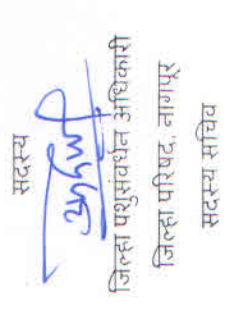 सदस्य
जिल्हा पशुसंवर्धन अधिकारी
जिल्हा परिषद, नागपूर
सदस्य सचिव